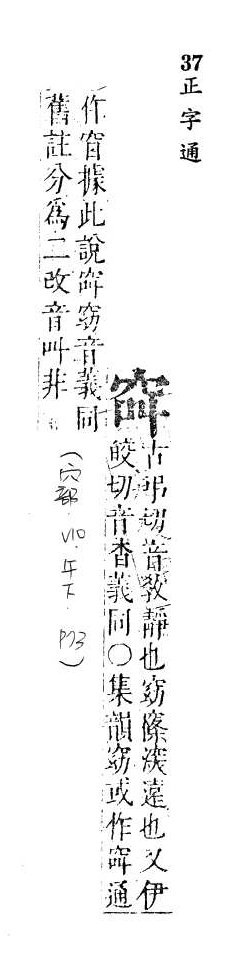 37 正字通
古弔切音敎靜也窈窱深遠也又伊
皎切音杳義同○集韻窈或作 通
作窅據此說 窈音義同
舊註分爲二改音叫非
(穴部．V10．午下．P73)